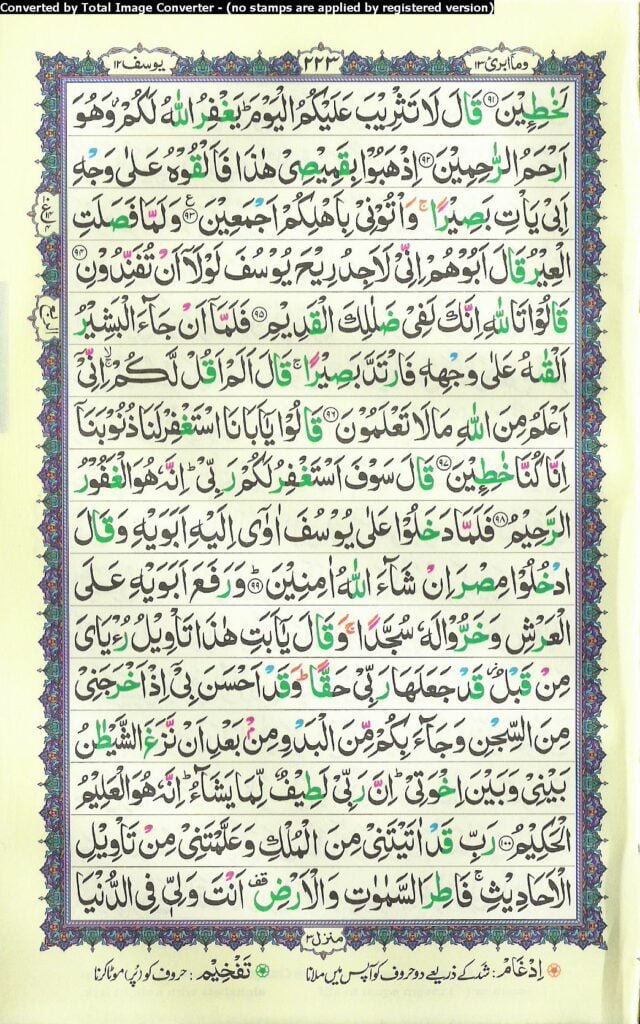 Converted by Total Image Converter - (no stamps are applied by registered version)
وما ابرئ ١٣ ٢٢٣ يوسف ١٢
لَخٰطِـِٕیْنَ ۝٩١ قَالَ لَا تَثْرِیْبَ عَلَیْكُمُ الْیَوْمَ ؕ یَغْفِرُ اللّٰهُ لَكُمْ ؗ وَهُوَ
اَرْحَمُ الرّٰحِمِیْنَ ۝٩٢ اِذْهَبُوْا بِقَمِیْصِیْ هٰذَا فَاَلْقُوْهُ عَلٰی وَجْهِ
اَبِیْ یَاْتِ بَصِیْرًا ۚ وَاْتُوْنِیْ بِاَهْلِكُمْ اَجْمَعِیْنَ ۝٩٣ ع وَلَمَّا فَصَلَتِ
الْعِیْرُ قَالَ اَبُوْهُمْ اِنِّیْ لَاَجِدُ رِیْحَ یُوْسُفَ لَوْلَاۤ اَنْ تُفَنِّدُوْنِ ۝٩٤
قَالُوْا تَاللّٰهِ اِنَّكَ لَفِیْ ضَلٰلِكَ الْقَدِیْمِ ۝٩٥ فَلَمَّاۤ اَنْ جَآءَ الْبَشِیْرُ
اَلْقٰىهُ عَلٰی وَجْهِهٖ فَارْتَدَّ بَصِیْرًا ۚ قَالَ اَلَمْ اَقُلْ لَّكُمْ ۙ اِنِّیْۤ
اَعْلَمُ مِنَ اللّٰهِ مَا لَا تَعْلَمُوْنَ ۝٩٦ قَالُوْا یٰۤاَبَانَا اسْتَغْفِرْ لَنَا ذُنُوْبَنَاۤ
اِنَّا كُنَّا خٰطِـِٕیْنَ ۝٩٧ قَالَ سَوْفَ اَسْتَغْفِرُ لَكُمْ رَبِّیْ ؕ اِنَّهٗ هُوَ الْغَفُوْرُ
الرَّحِیْمُ ۝٩٨ فَلَمَّا دَخَلُوْا عَلٰی یُوْسُفَ اٰوٰۤی اِلَیْهِ اَبَوَیْهِ وَقَالَ
ادْخُلُوْا مِصْرَ اِنْ شَآءَ اللّٰهُ اٰمِنِیْنَ ۝٩٩ؕ وَرَفَعَ اَبَوَیْهِ عَلَی
الْعَرْشِ وَخَرُّوْا لَهٗ سُجَّدًا ۚ وَقَالَ یٰۤاَبَتِ هٰذَا تَاْوِیْلُ رُءْیَایَ
مِنْ قَبْلُ ؗ قَدْ جَعَلَهَا رَبِّیْ حَقًّا ؕ وَقَدْ اَحْسَنَ بِیْۤ اِذْ اَخْرَجَنِیْ
مِنَ السِّجْنِ وَجَآءَ بِكُمْ مِّنَ الْبَدْوِ مِنْۢ بَعْدِ اَنْ نَّزَغَ الشَّیْطٰنُ
بَیْنِیْ وَبَیْنَ اِخْوَتِیْ ؕ اِنَّ رَبِّیْ لَطِیْفٌ لِّمَا یَشَآءُ ؕ اِنَّهٗ هُوَ الْعَلِیْمُ
الْحَكِیْمُ ۝١٠٠ رَبِّ قَدْ اٰتَیْتَنِیْ مِنَ الْمُلْكِ وَعَلَّمْتَنِیْ مِنْ تَاْوِیْلِ
الْاَحَادِیْثِ ۚ فَاطِرَ السَّمٰوٰتِ وَالْاَرْضِ قف اَنْتَ وَلِیّٖ فِی الدُّنْیَا
منزل ٣
اِدْغَام : شد کے ذریعے دو حروف کو آپس میں ملانا تَفْخِیْم : حروف کو (پُر) موٹا کرنا